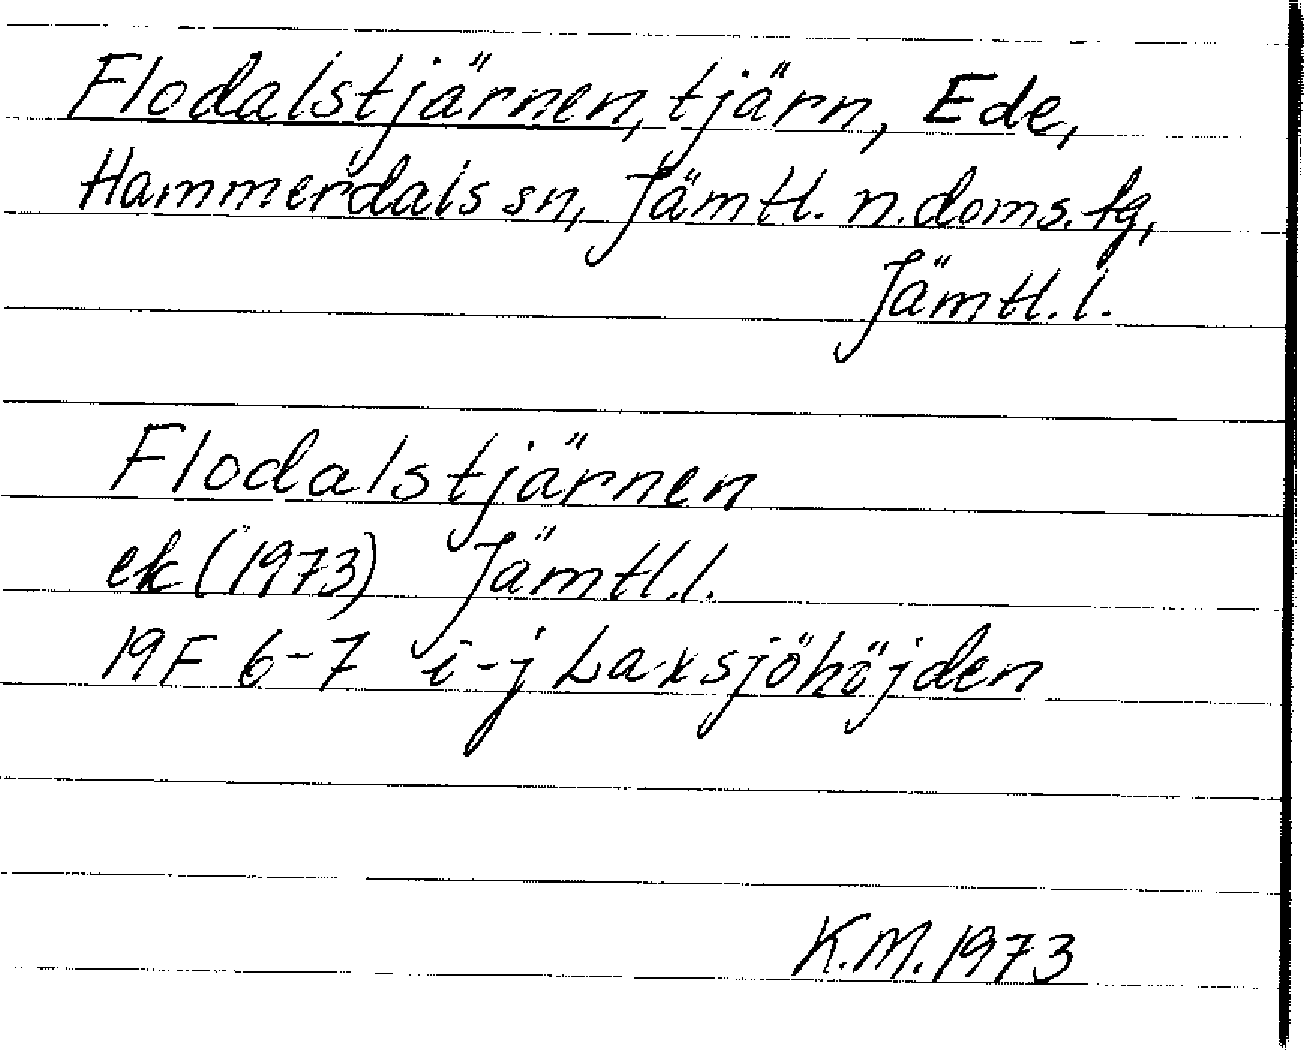 Flodalstjärnen, tjärn, Ede,
Hammerdals sn, Jämtl. n. doms. tg,
Jämtl. l.
Flodalstjärnen
ek (1973) Jämtl. l.
19F 6-7 i-j Laxsjöhöjden
K.M. 1973